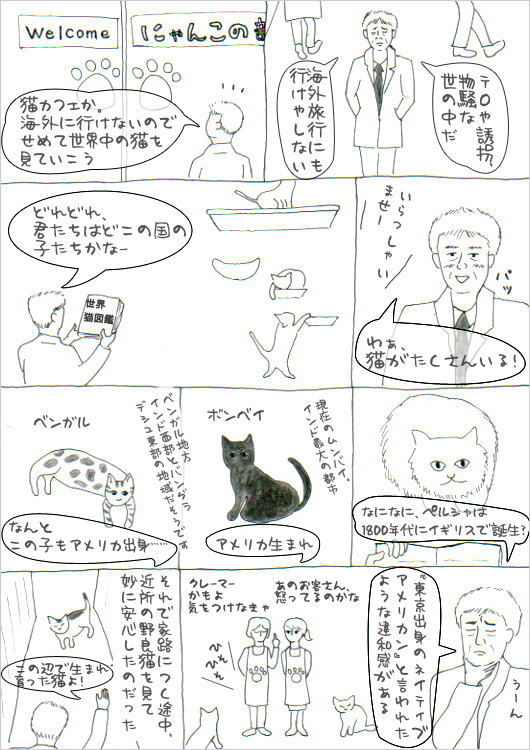 テロや誘拐、
物騒な
世の中だ
海外旅行にも
行けやしない
Welcome
にゃんこの
猫カフェか。
海外に行けないので
せめて世界中の猫を
見ていこう
いらっしゃい
ませー
パッ
わぁ、
猫がたくさんいる!
どれどれ、
君たちはどこの国の
子たちかなー
世界
猫図鑑
なになに、ペルシャは
1800年代にイギリスで誕生?
ボンベイ
現在のムンバイ、
インド最大の都市
アメリカ生まれ
ベンガル
ベンガル地方
インド西部とバングラ
デシュ東部の地域だそうです
なんと
この子もアメリカ出身……
『東京出身のネイティブ
アメリカン』と言われた
ような違和感がある
うーん
あのお客さん、
怒ってるのかな
クレーマー
かもよ
気をつけなきゃ
ひそひそ
それで家路につく途中、
近所の野良猫を見て
妙に安心したのだった
この辺で生まれ
育った猫よ!